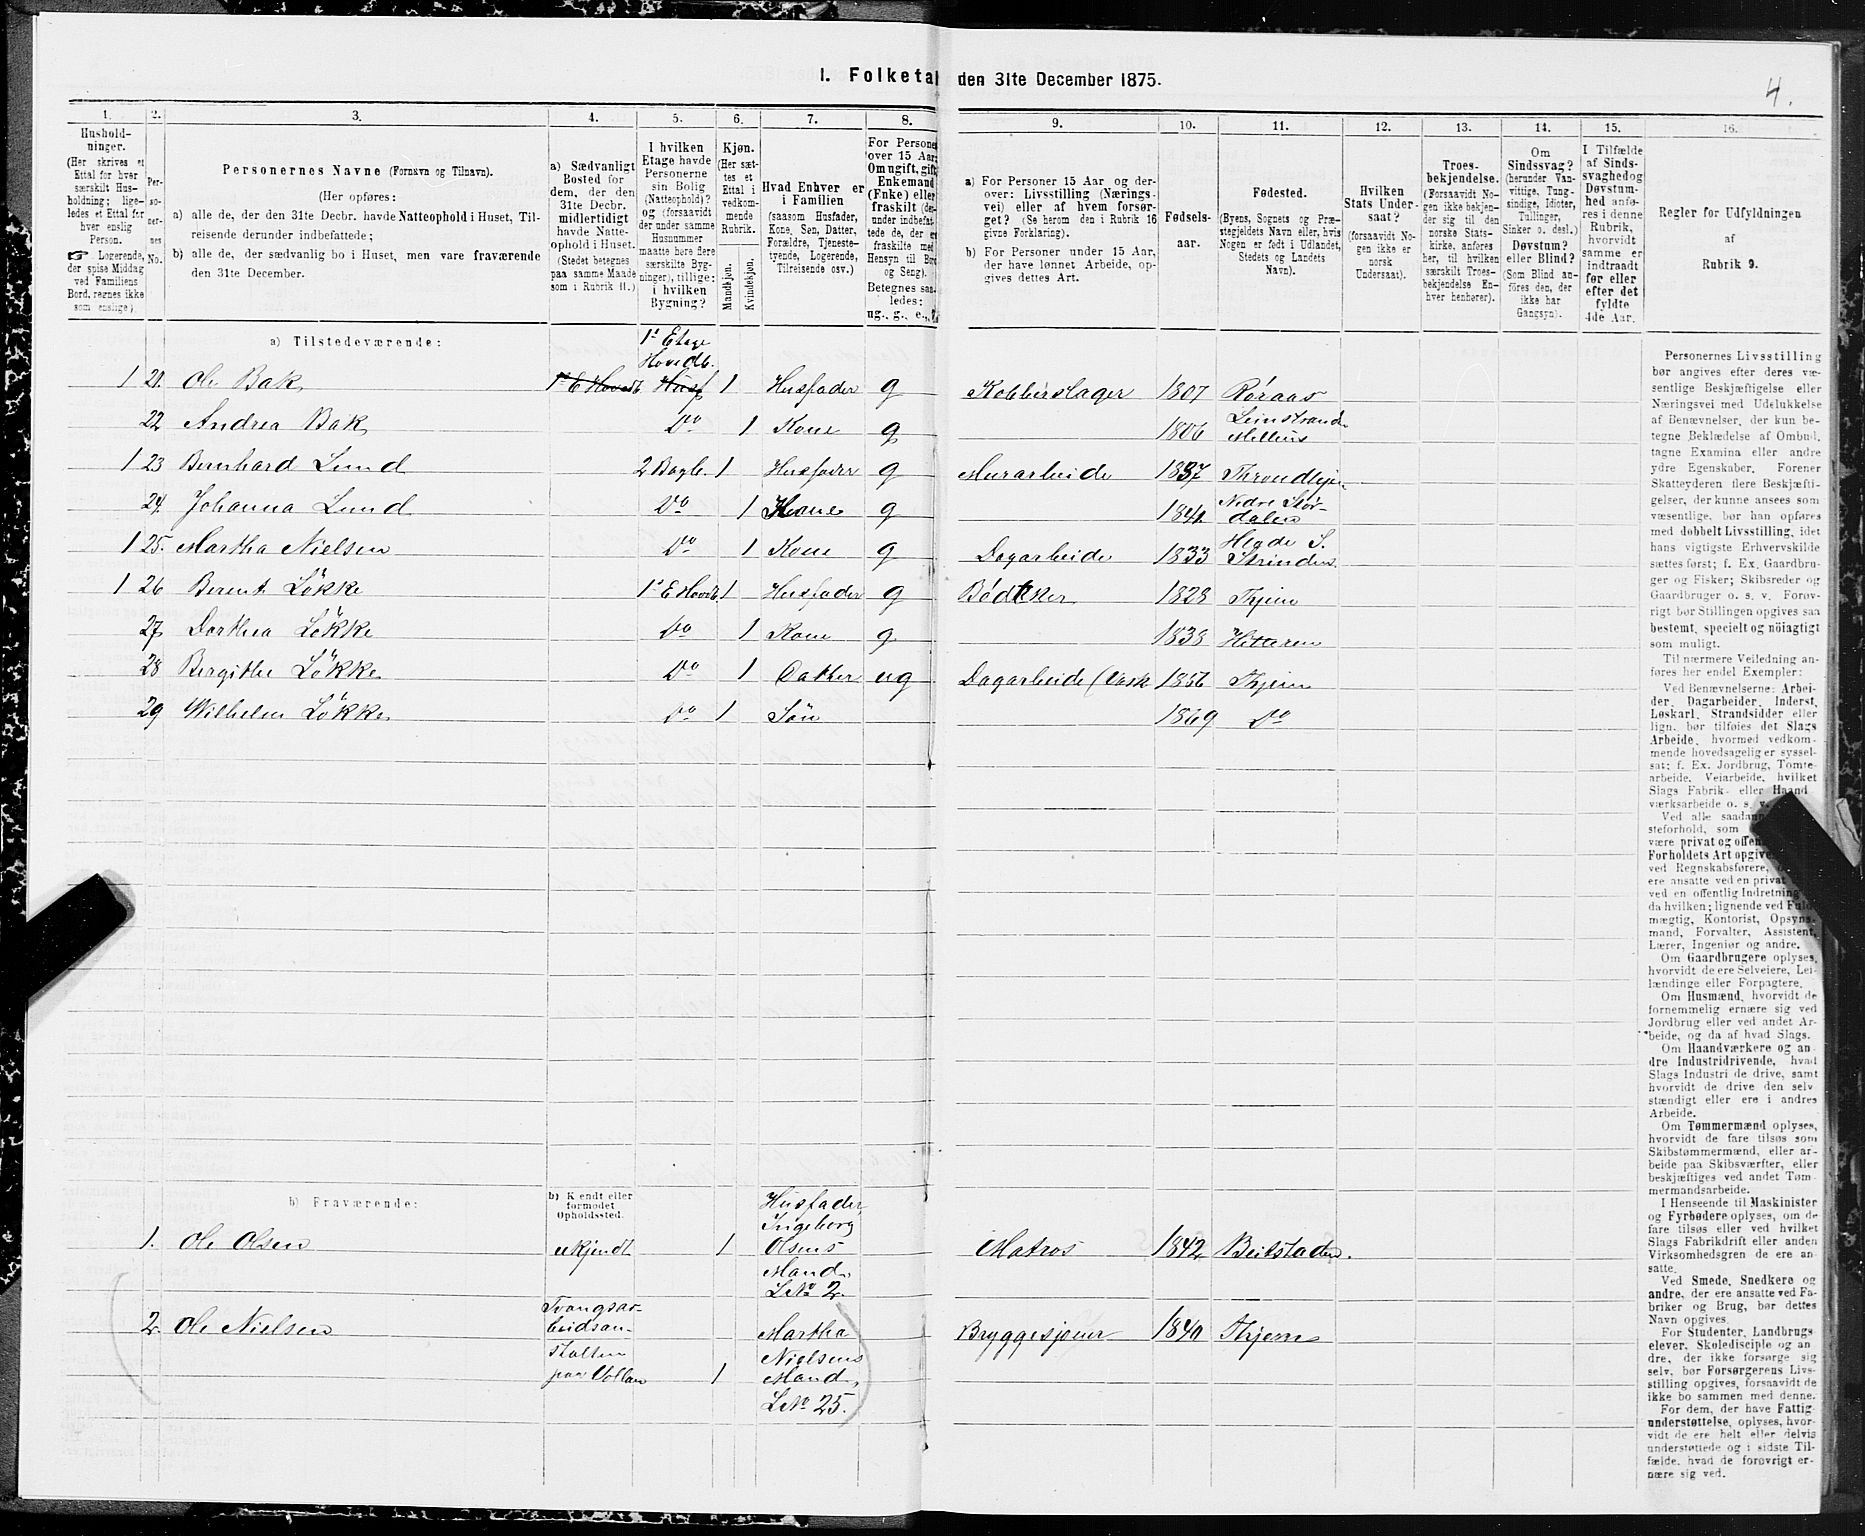 I. Folketal den 31te December 1875.
4.
1. 2. 3. 4. 5. 6. 7. 8. 9. 10. 11. 12. 13. 14. 15. 16.
Hushold-
ninger.
(Her skrives et
Ettal for hver
særskilt Hus-
holdning; lige-
ledes et Ettal for
hver enslig
Person.
☞ Logerende,
der spise Middag
ved Familiens
Bord, regnes ikke
som enslige).
Per-
so-
ner-
nes
No.
Personernes Navne (Fornavn og Tilnavn).
(Her opføres:
a) alle de, der den 31te Decbr. havde Natteophold i Huset, Til-
reisende derunder indbefattede;
b) alle de, der sædvanlig bo i Huset, men vare fraværende
den 31te December.
a) Sædvanligt
Bosted for
dem, der den
31te Decbr.
midlertidigt
havde Natte-
ophold i Huset.
(Stedet betegnes
paa samme Maade
som i Rubrik 11.)
I hvilken
Etage havde
Personerne
sin Bolig
(Natteophold)?
og (forsaavidt
der under samme
Husnummer
maatte høre flere
særskilte Byg-
ninger), tillige:
i hvilken
Bygning?
Kjøn.
(Her sæt-
tes et
Ettal i
vedkom-
mende
Rubrik.)
Mandkjøn.
Kvindekjøn.
Hvad Enhver er
i Familien
(saasom Husfader,
Kone, Søn, Datter,
Forældre, Tjeneste-
tyende, Logerende,
Tilreisende osv.)
For Persone
over 15 Aar:
Om ugift, gift,
Enkemand
(Enke) eller
fraskilt (der-
under indbefat-
tede de, der e
fraskilte med
Hensyn til Bord
og Seng).
Betegnes saa-
ledes:
ug., g., e.,
a) For Personer 15 Aar og der-
over: Livsstilling (Nærings-
vei) eller af hvem forsør-
get? (Se herom den i Rubrik 16
givne Forklaring).
b) For Personer under 15 Aar,
der have lønnet Arbeide, op-
gives dettes Art.
Fødsels-
aar.
Fødested.
(Byens, Sognets og Præ-
stegjeldets Navn eller, hvis
Nogen er født i Udlandet,
Stedets og Landets
Navn).
Hvilken
Stats Under-
saat?
(forsaavidt No-
gen ikke er
norsk
Undersaat).
Troes-
bekjendelse.
(Forsaavidt No-
gen ikke bekjen-
der sig til den
norske Stats-
kirke, anføres
her, til hvilken
særskilt Troes-
bekjendelse En-
hver henhører).
Om
Sindssvag?
(herunder Van-
vittige, Tung-
sindige, Idioter,
Tullinger,
Sinker o. desl.)
Døvstum?
eller Blind?
(Som Blind an-
føres den, der
ikke har
Gangsyn).
I Tilfælde
af Sinds-
svaghed og
Døvstum-
hed anfø-
res i denne
Rubrik,
hvorvidt
samme er
indtraadt
før eller
efter det
fyldte
4de Aar.
Regler for Udfyldningen
af
Rubrik 9.
a) Tilstedeværende:
1st Etage
Hovedb.
1 21. Ole Bak 1st E Hovedb Husf 1 Husfader g Kobberslager 1807 Røraas
22 Andrea Bak Do 1 Kone g 1806 Leinstranden Melhus
1 23 Bernhard Lund 2 Bagb. 1 Husfader g Murarbeide 1837 Throndhjem
24 Johanna Lund Do 1 Kone g 1841 Nedre Stør-
dalen
1 25. Martha Nielsen Do 1 Kone g Dagarbeide 1833 Hlade S.
Strinden
1 26 Berent Løkke 1st E Hovdb. 1 Husfader g Bødtker 1828 Thjem
27 Dorthea Løkke Do 1 Kone g 1838 Hitteren
28 Bergithe Løkke Do 1 Datter ug Dagarbeide (Vask 1856 Thjem
29 Wilhelm Løkke Do 1 Søn 1869 Do
b) Fraværende:
b) Kendt eller
formodet
Opholdssted.
1. Ole Olsen ukjendt 1 Husfader
Ingeborg
Olsens
Mand,
L No 2. Matros 1842 Beitstaden.
2. Ole Nielsen Tvangsar-
beidsan-
stalten
paa Vollan 1 Martha
Nielsens
Mand,
L No 25. Bryggesjouer 1840 Thjem
Personernes Livsstilling
bør angives efter deres væ-
sentlige Beskjæftigelse eller
Næringsvei med Udelukkelse
af Benævnelser, der kun be-
tegne Beklædelse af Ombud,
tagne Examina eller andre
ydre Egenskaber. Forener
Skatteyderen flere Beskjæfti-
gelser, der kunne ansees som
væsentlige, bør han opføres
med dobbelt Livsstilling, idet
hans vigtigste Erhvervskilde
sættes først; f. Ex. Gaardbru-
ger og Fisker; Skibsreder og
Gaardbruger o. s. v. Forøv-
rigt bør Stillingen opgives saa
bestemt, specielt og nöiagtigt
som muligt.
Til nærmere Veiledning an-
føres her endel Exempler:
Ved Benævnelserne: Arbei-
der, Dagarbeider, Inderst,
Løskarl, Strandsidder eller
lign. bør tilføies det Slags
Arbeide, hvormed vedkom-
mende hovedsagelig er syssel-
sat; f. Ex. Jordbrug, Tomte-
arbeide, Veiarbeide, hvilket
Slags Fabrik- eller Haand-
værksarbeide o. s. v.
Ved alle saadan
steforhold, som
være privat og offen
Forholdets Art opgives
ved Regnskabsførere,
ere ansatte ved en privat
ved en offentlig Indretning
da hvilken; lignende ved Fuld-
mægtig, Kontorist, Opsyns-
mand, Forvalter, Assistent,
Lærer, Ingeniør og andre.
Om Gaardbrugere oplyses,
hvorvidt de ere Selveiere, Lei-
lændinge eller Forpagtere.
Om Husmænd, hvorvidt de
fornemmelig ernære sig ved
Jordbrug eller ved andet Ar-
beide, og da af hvad Slags.
Om Haandværkere og an-
dre Industridrivende, hvad
Slags Industri de drive, samt
hvorvidt de drive den selv-
stændigt eller ere i andres
Arbeide.
Om Tømmermænd oplyses,
hvorvidt de fare tilsøs som
Skibstømmermænd, eller ar-
beide paa Skibsværfter, eller
beskjæftiges ved andet Tøm-
mermandsarbeide.
I Henseende til Maskinister
og Fyrbødere oplyses, om de
fare tilsøs eller ved hvilket
Slags Fabrikdrift eller anden
Virksomhedsgren de ere an-
satte.
Ved Smede, Snedkere og
andre, der ere ansatte ved Fa-
briker og Brug, bør dettes
Navn opgives.
For Studenter, Landbrugs-
elever, Skoledisciple og an-
dre, der ikke forsørge sig
selv, bør Forsørgerens Livs-
stilling opgives, forsaavidt de
ikke bo sammen med denne.
For dem, der have Fattig-
understøttelse, oplyses, hvor-
vidt de ere helt eller delvis
understøttede og i sidste Til-
fælde, hvad de forøvrigt er-
nære sig ved.